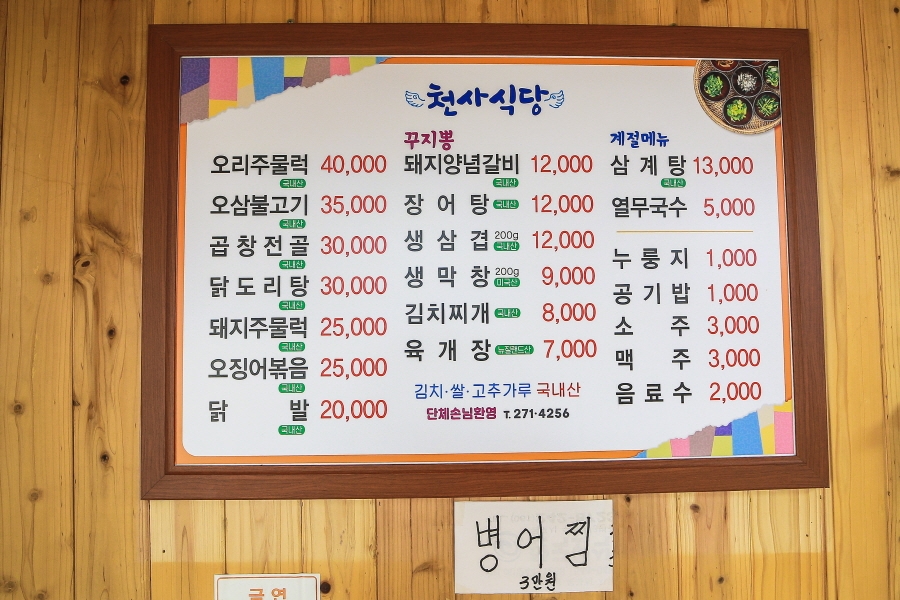 천사식당
오리주물럭 40,000
국내산
오삼불고기 35,000
국내산
곱창전골 30,000
국내산
닭도리탕 30,000
국내산
돼지주물럭 25,000
국내산
오징어볶음 25,000
국내산
닭발 20,000
국내산
꾸지뽕
돼지양념갈비 12,000
국내산
장어탕 국내산 12,000
생삼겹 200g 국내산 12,000
생막창 200g 미국산 9,000
김치찌개 국내산 8,000
육개장 뉴질랜드산 7,000
김치·쌀·고추가루 국내산
단체손님환영 T. 271·4256
계절메뉴
삼계탕 13,000
국내산
열무국수 5,000
누룽지 1,000
공기밥 1,000
소주 3,000
맥주 3,000
음료수 2,000
병어찜
3만원
금연